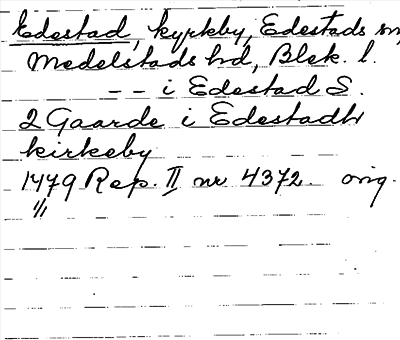 Edestad, kyrkby, Edestads sn,
Medelstads hd, Blek. l.
-- i Edestad S.
2 Gaarde i Edestadh
kirkeby
1479 Rep. II nr 4372. orig.
4/1